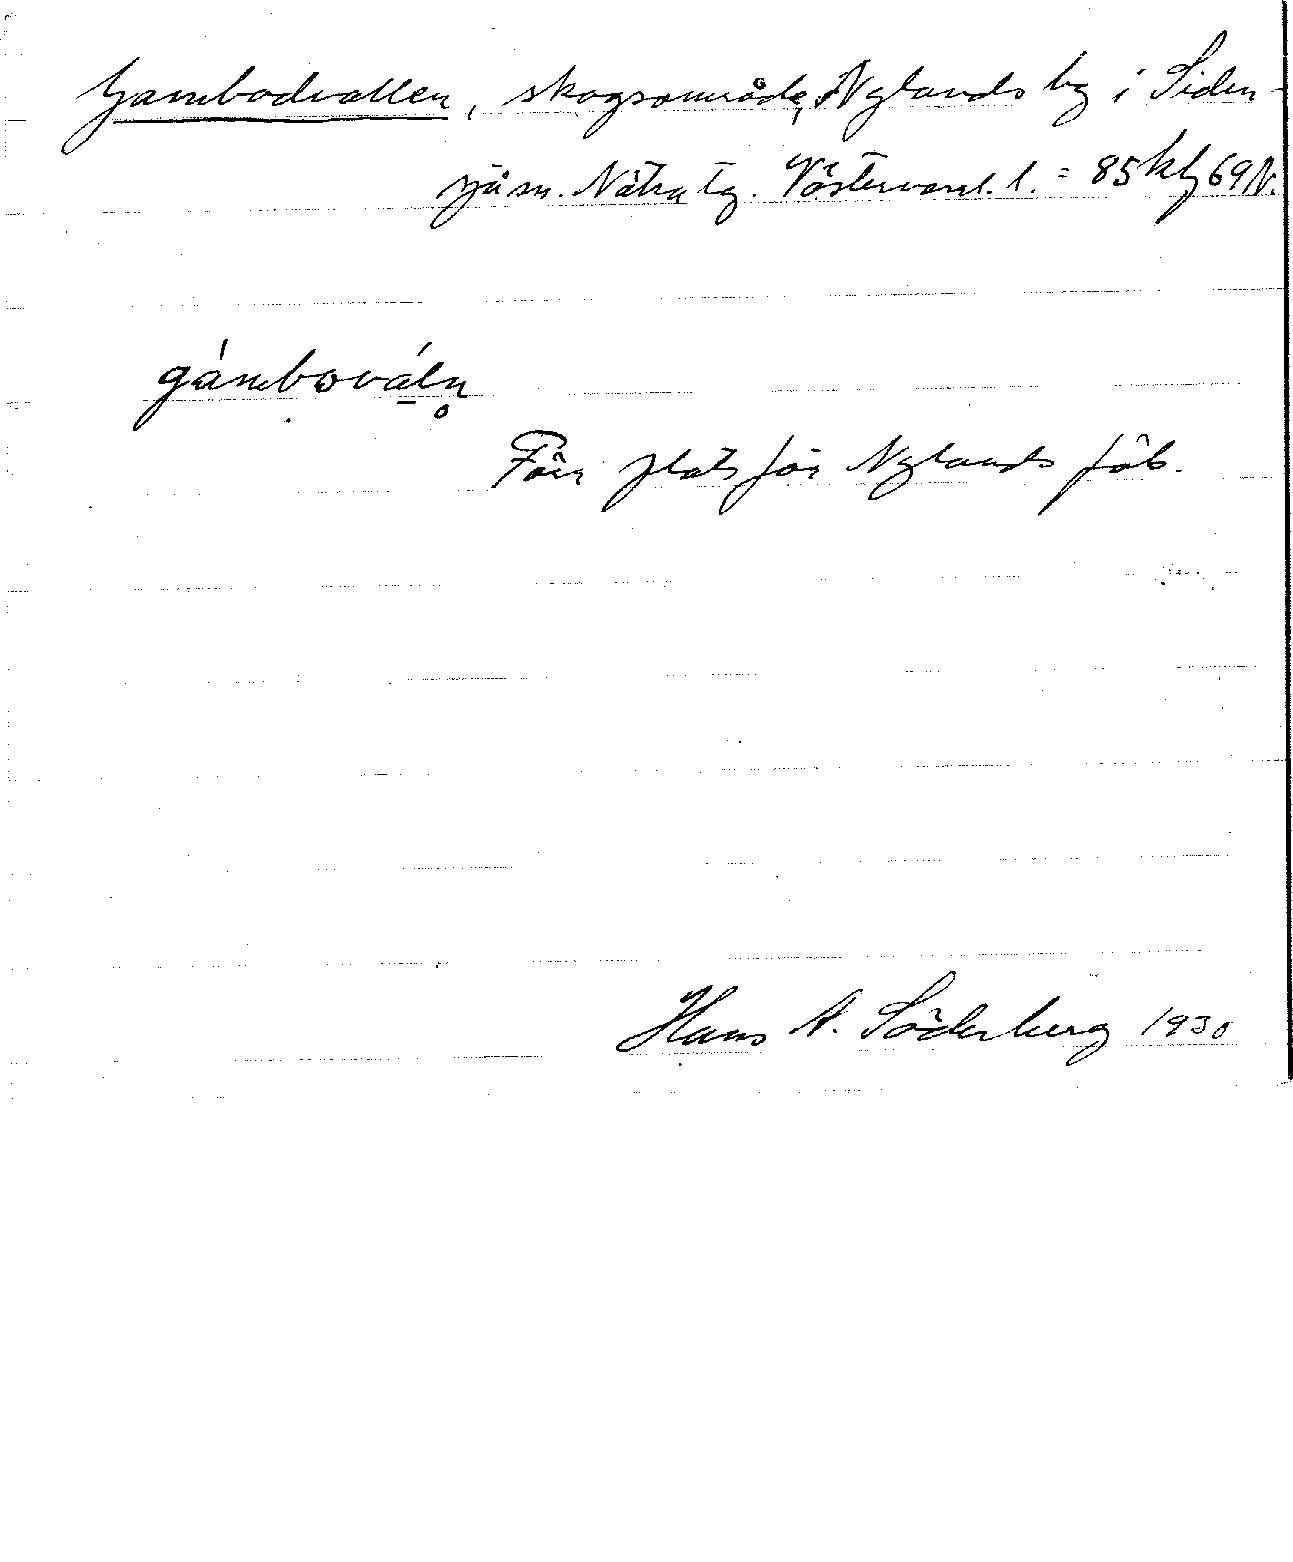 Gambodvallen, skogsområde, Nylands by i Siden-
sjö sn. Nätra tg. Västernorrl. l. = 85
gámbováln̥
Förr plats för Nylands fäb.
Hans A. Söderberg 1930